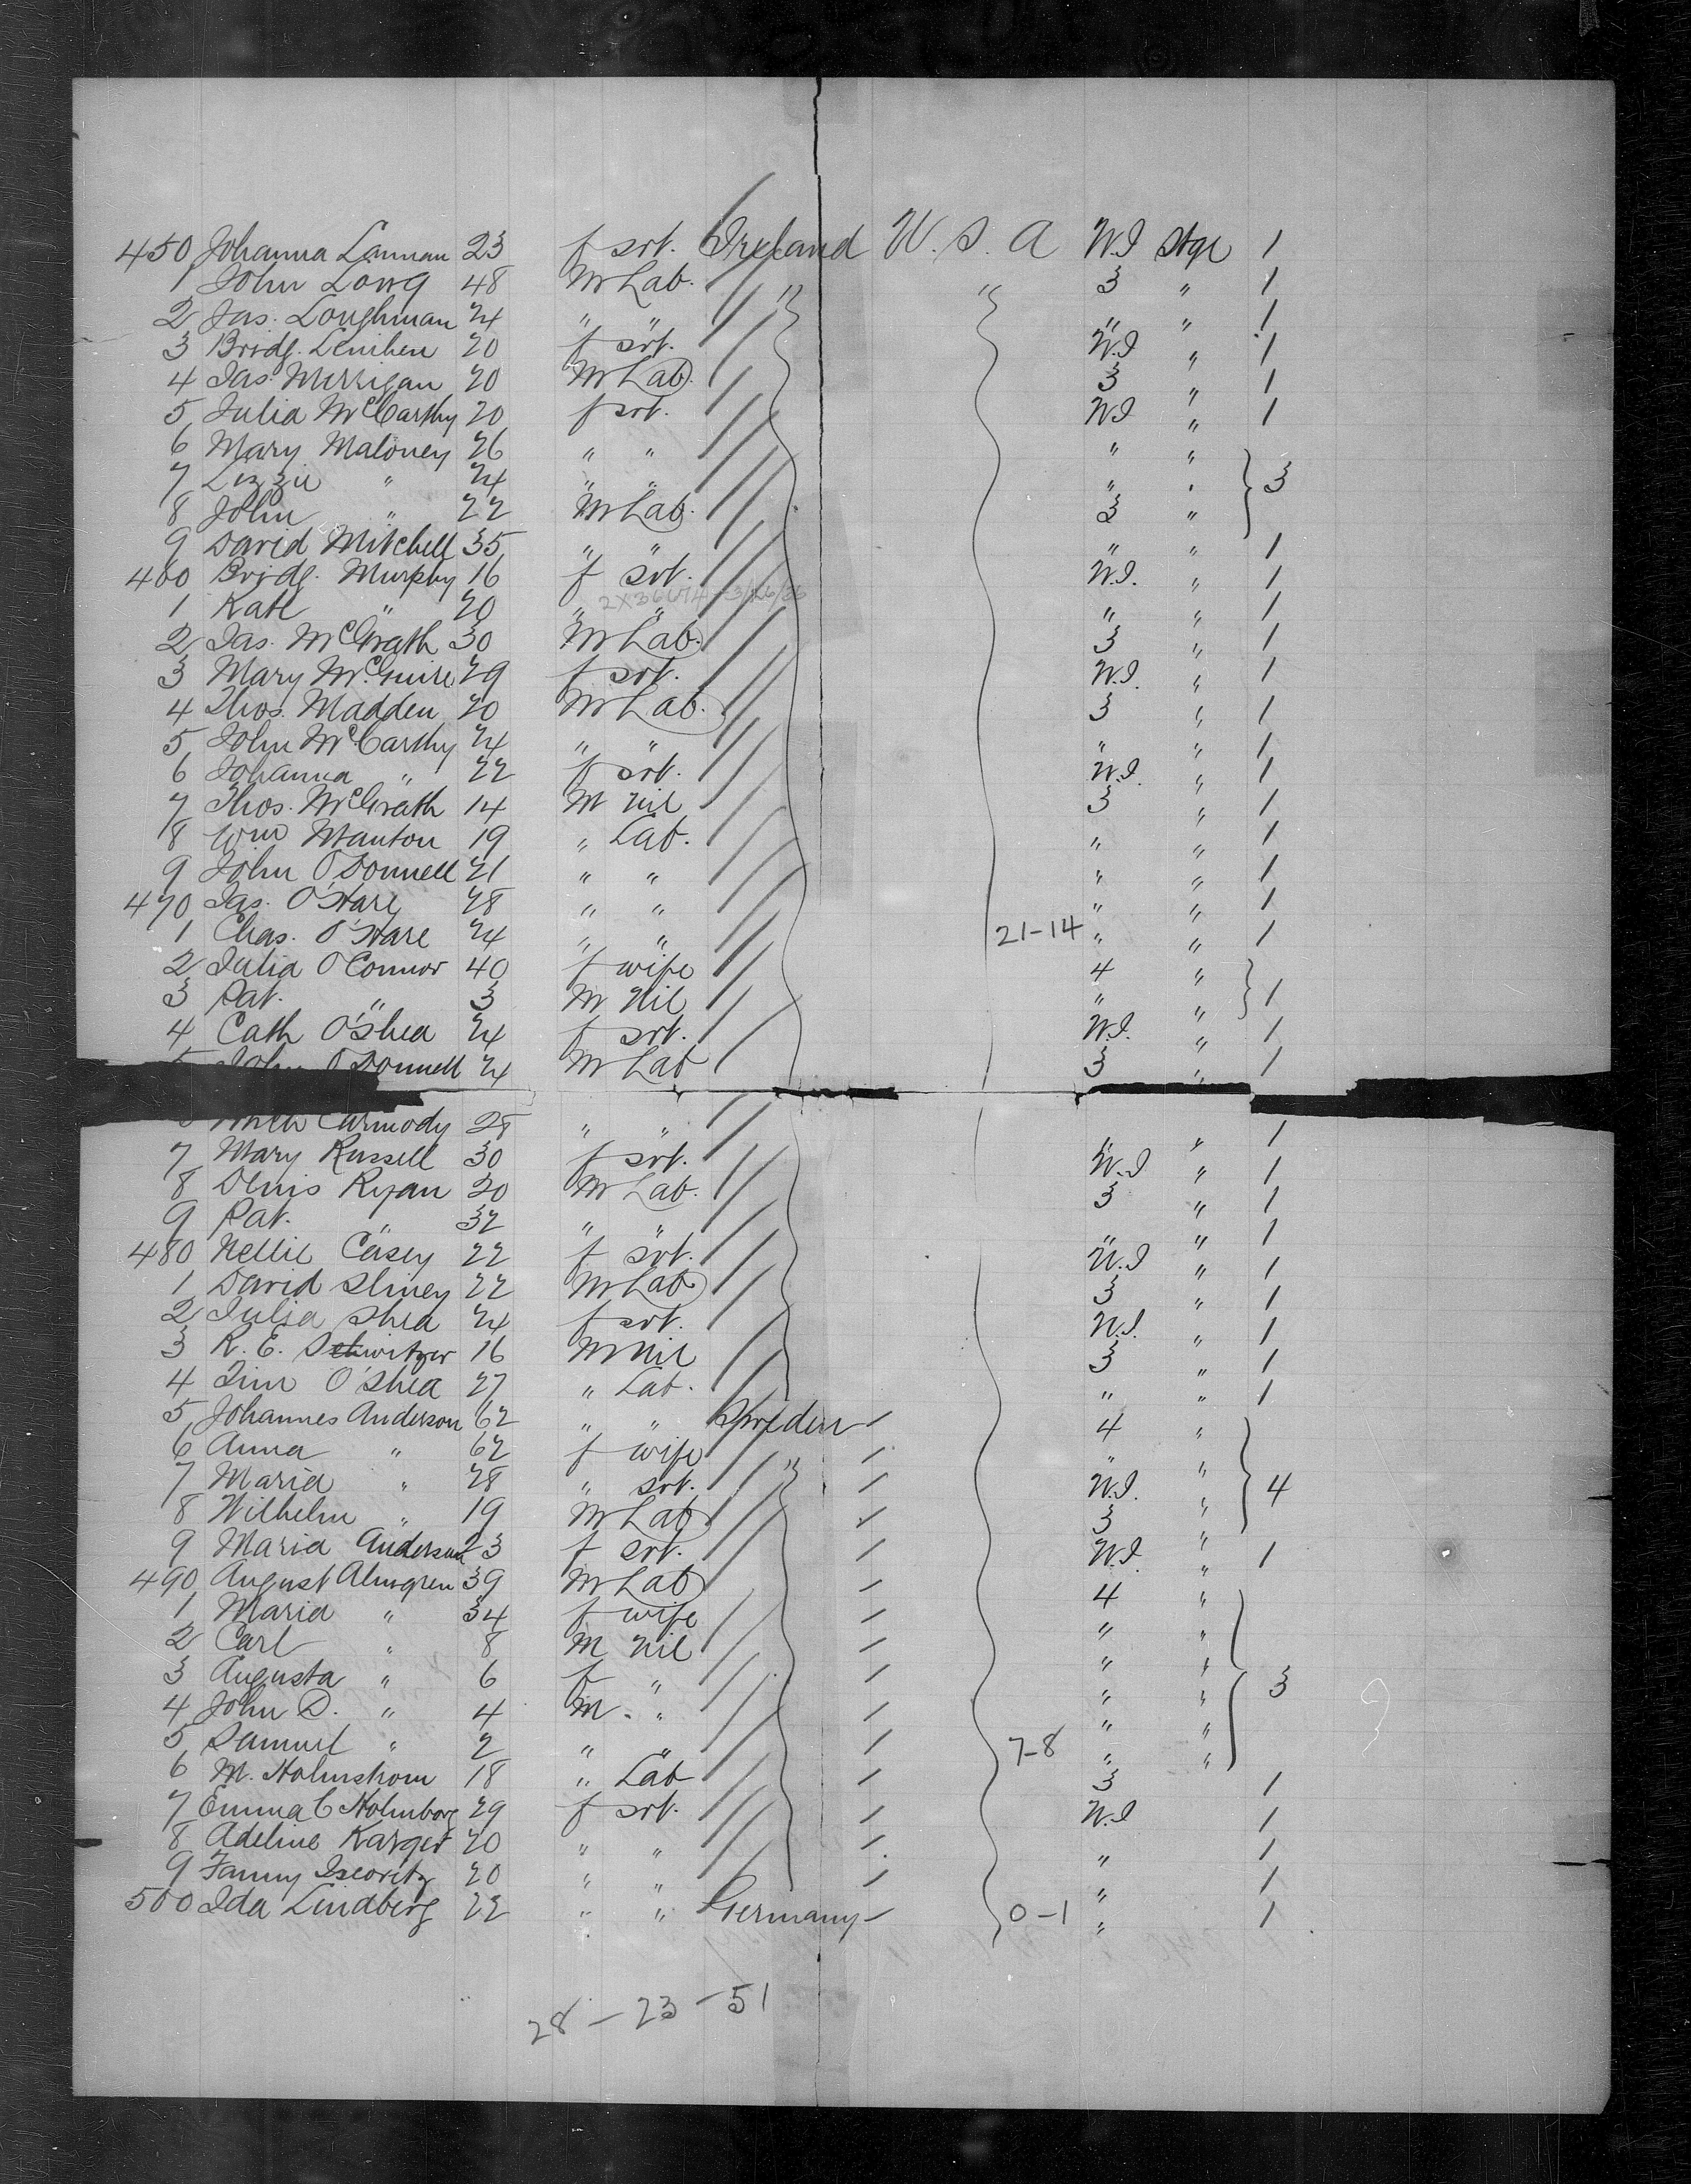 450 Johanna Lannan 23 f srt. Ireland U. S. A W.I Stge 1
1 John Long 48 M Lab. " " 3 " 1
2 Jas. Loughman 24 " " " " 1
3 Bridg. Lenihen 20 f srt. W.I " 1
4 Jas. Merrigan 20 M Lab. 3 " 1
5 Julia McCarthy 20 f srt. W.I " 1
6 Mary Maloney 26 " " " "
7 Lizzie " 24 " " " " 3
8 John " 22 M Lab. 3 "
9 David Mitchell 35 " " " " 1
460 Bridg. Murphy 16 f srt. W.I. " 1
1 Kate " 20 " " " " 1
2 Jas. McGrath 30 M Lab. 3 " 1
3 Mary McGuire 29 f srt. W.I. " 1
4 Thos. Madden 20 M Lab. 3 " 1
5 John McCarthy 24 " " " " 1
6 Johanna " 22 f srt. W.I. " 1
7 Thos. McGrath 14 M Nil 3 " 1
8 Wm Manton 19 " Lab. " " 1
9 John O'Donnell 21 " " " " 1
470 Jas. O'Hare 28 " " " " 1
1 Chas. O'Hare 24 " " 21-14 " " 1
2 Julia O'Connor 40 f wife 4 "
3 Pat. " 3 M Nil " " 1
4 Cath O'Shea 24 f srt. W.I. " 1
5 John O'Donnell 24 M Lab 3 " 1
Carmody 28 " " " " 1
7 Mary Russell 30 f srt. W.I " 1
8 Denis Ryan 20 M Lab. 3 " 1
9 Pat. " 32 " " " " 1
480 Nellie Casey 22 f srt. W.I " 1
1 David Sliney 22 M Lab 3 " 1
2 Julia Shea 24 f srt. W.I. " 1
3 R. E. Schwitzer 16 M Nil 3 " 1
4 Tim O'Shea 27 " Lab. " " 1
5 Johannes Anderson 62 " " Sweden 4 "
6 Anna " 62 f wife " " "
7 Maria " 28 " srt. W.I. " 4
8 Wilhelm " 19 M Lab 3 "
9 Maria Anderson 23 f srt. W.I. " 1
490 August Almgren 39 M Lab 4 "
1 Maria " 34 f wife " "
2 Carl " 8 M Nil " "
3 Augusta " 6 f " " " 3
4 John D. " 4 M. " " "
5 Samuel " 2 " " 7-8 " "
6 M. Holmstrom 18 " Lab 3 1
7 Emma C Holmborg 29 f srt. W.I 1
8 Adeline Karger 20 " " " 1
9 Fanny 20 " " " 1
500 Ida Lindberg 22 " " Germany 0-1 " 1
28 - 23 - 51